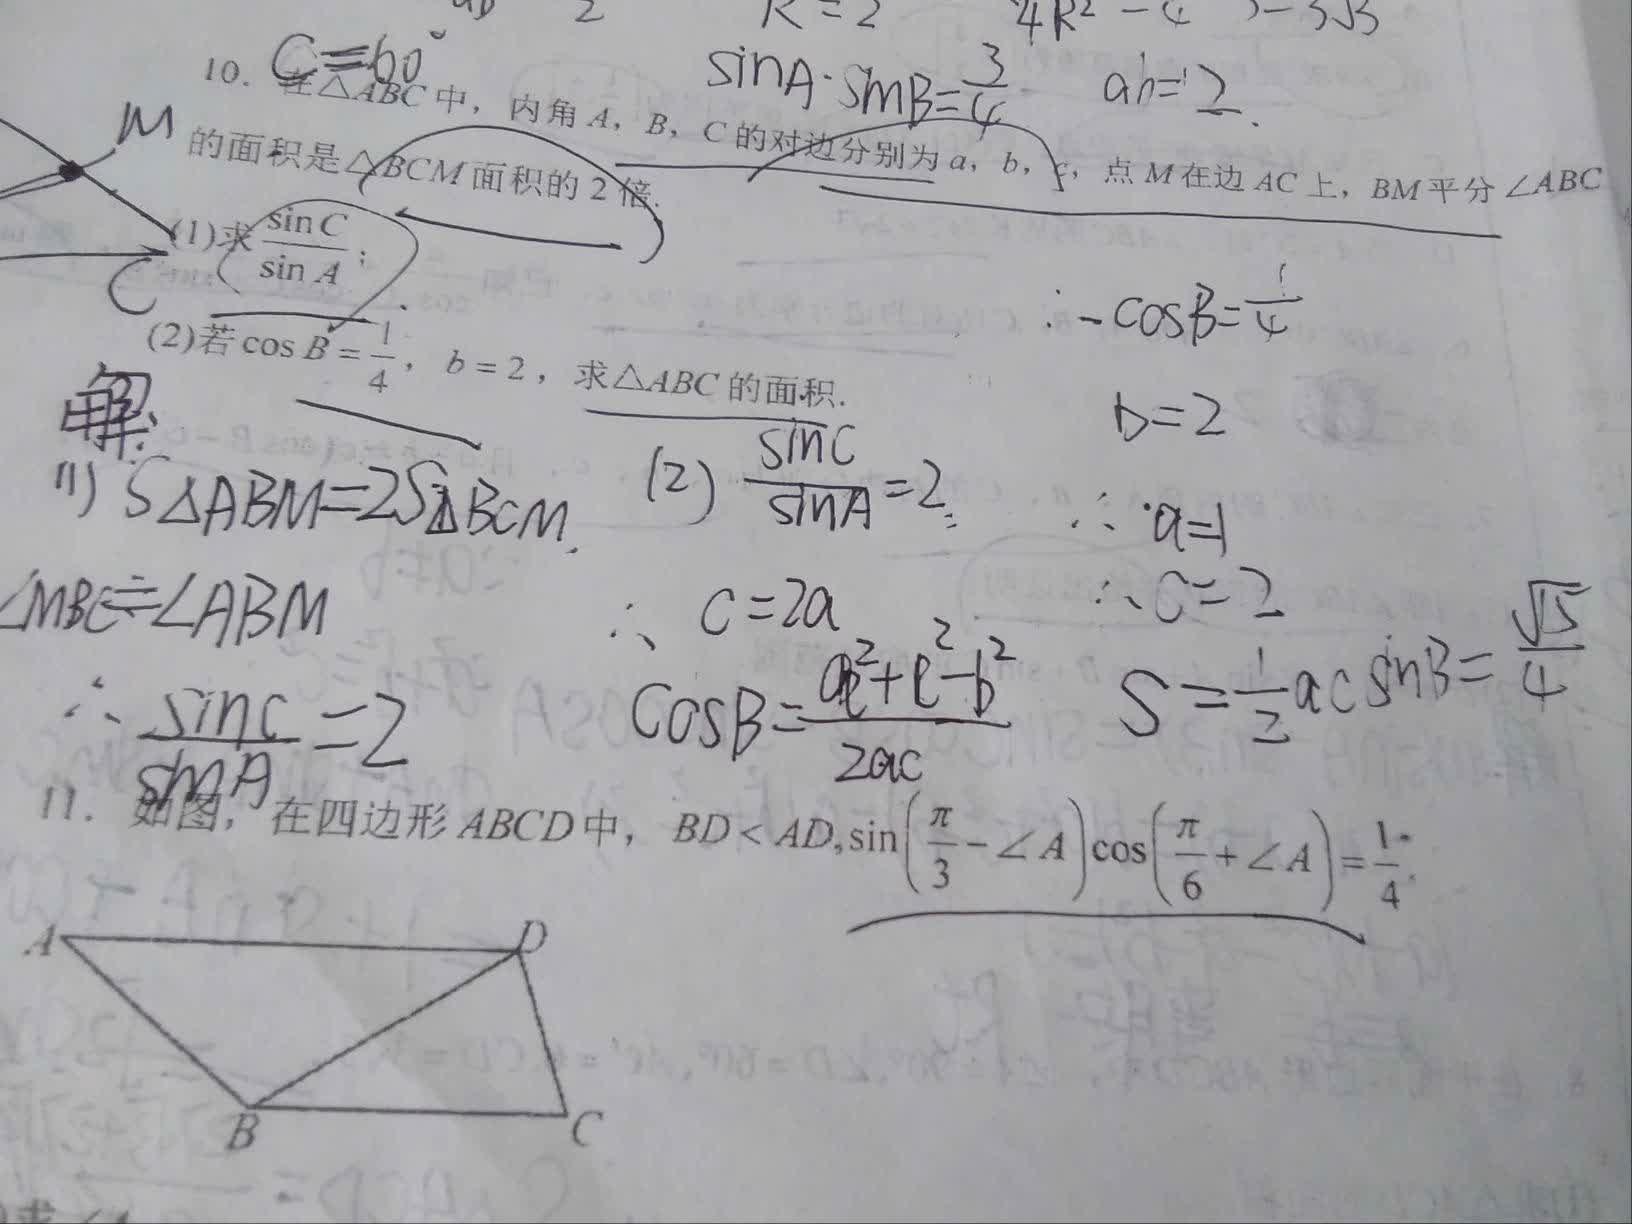 R=2
C=60°
sinA·sinB=3/4 ab=12.
10. 在△ABC中,内角A,B,C的对边分别为a,b,c,点M在边AC上,BM平分∠ABC
的面积是△BCM面积的2倍.
M
C
(1)求 sin C/sin A;
(2)若cos B=1/4,b=2,求△ABC的面积.
解:
(1) S△ABM=2S△BCM.
∠MBC=∠ABM
∴ sinC/sinA=2
(2) sinC/sinA=2
∴ c=2a
cosB=a²+c²-b²/2ac
∵ cosB=1/4
b=2
∴ a=1
∴ c=2
S=1/2acsinB=√15/4
11. 如图,在四边形ABCD中,BD<AD,sin(π/3-∠A)cos(π/6+∠A)=1/4.
A
D
B
C
求∠A